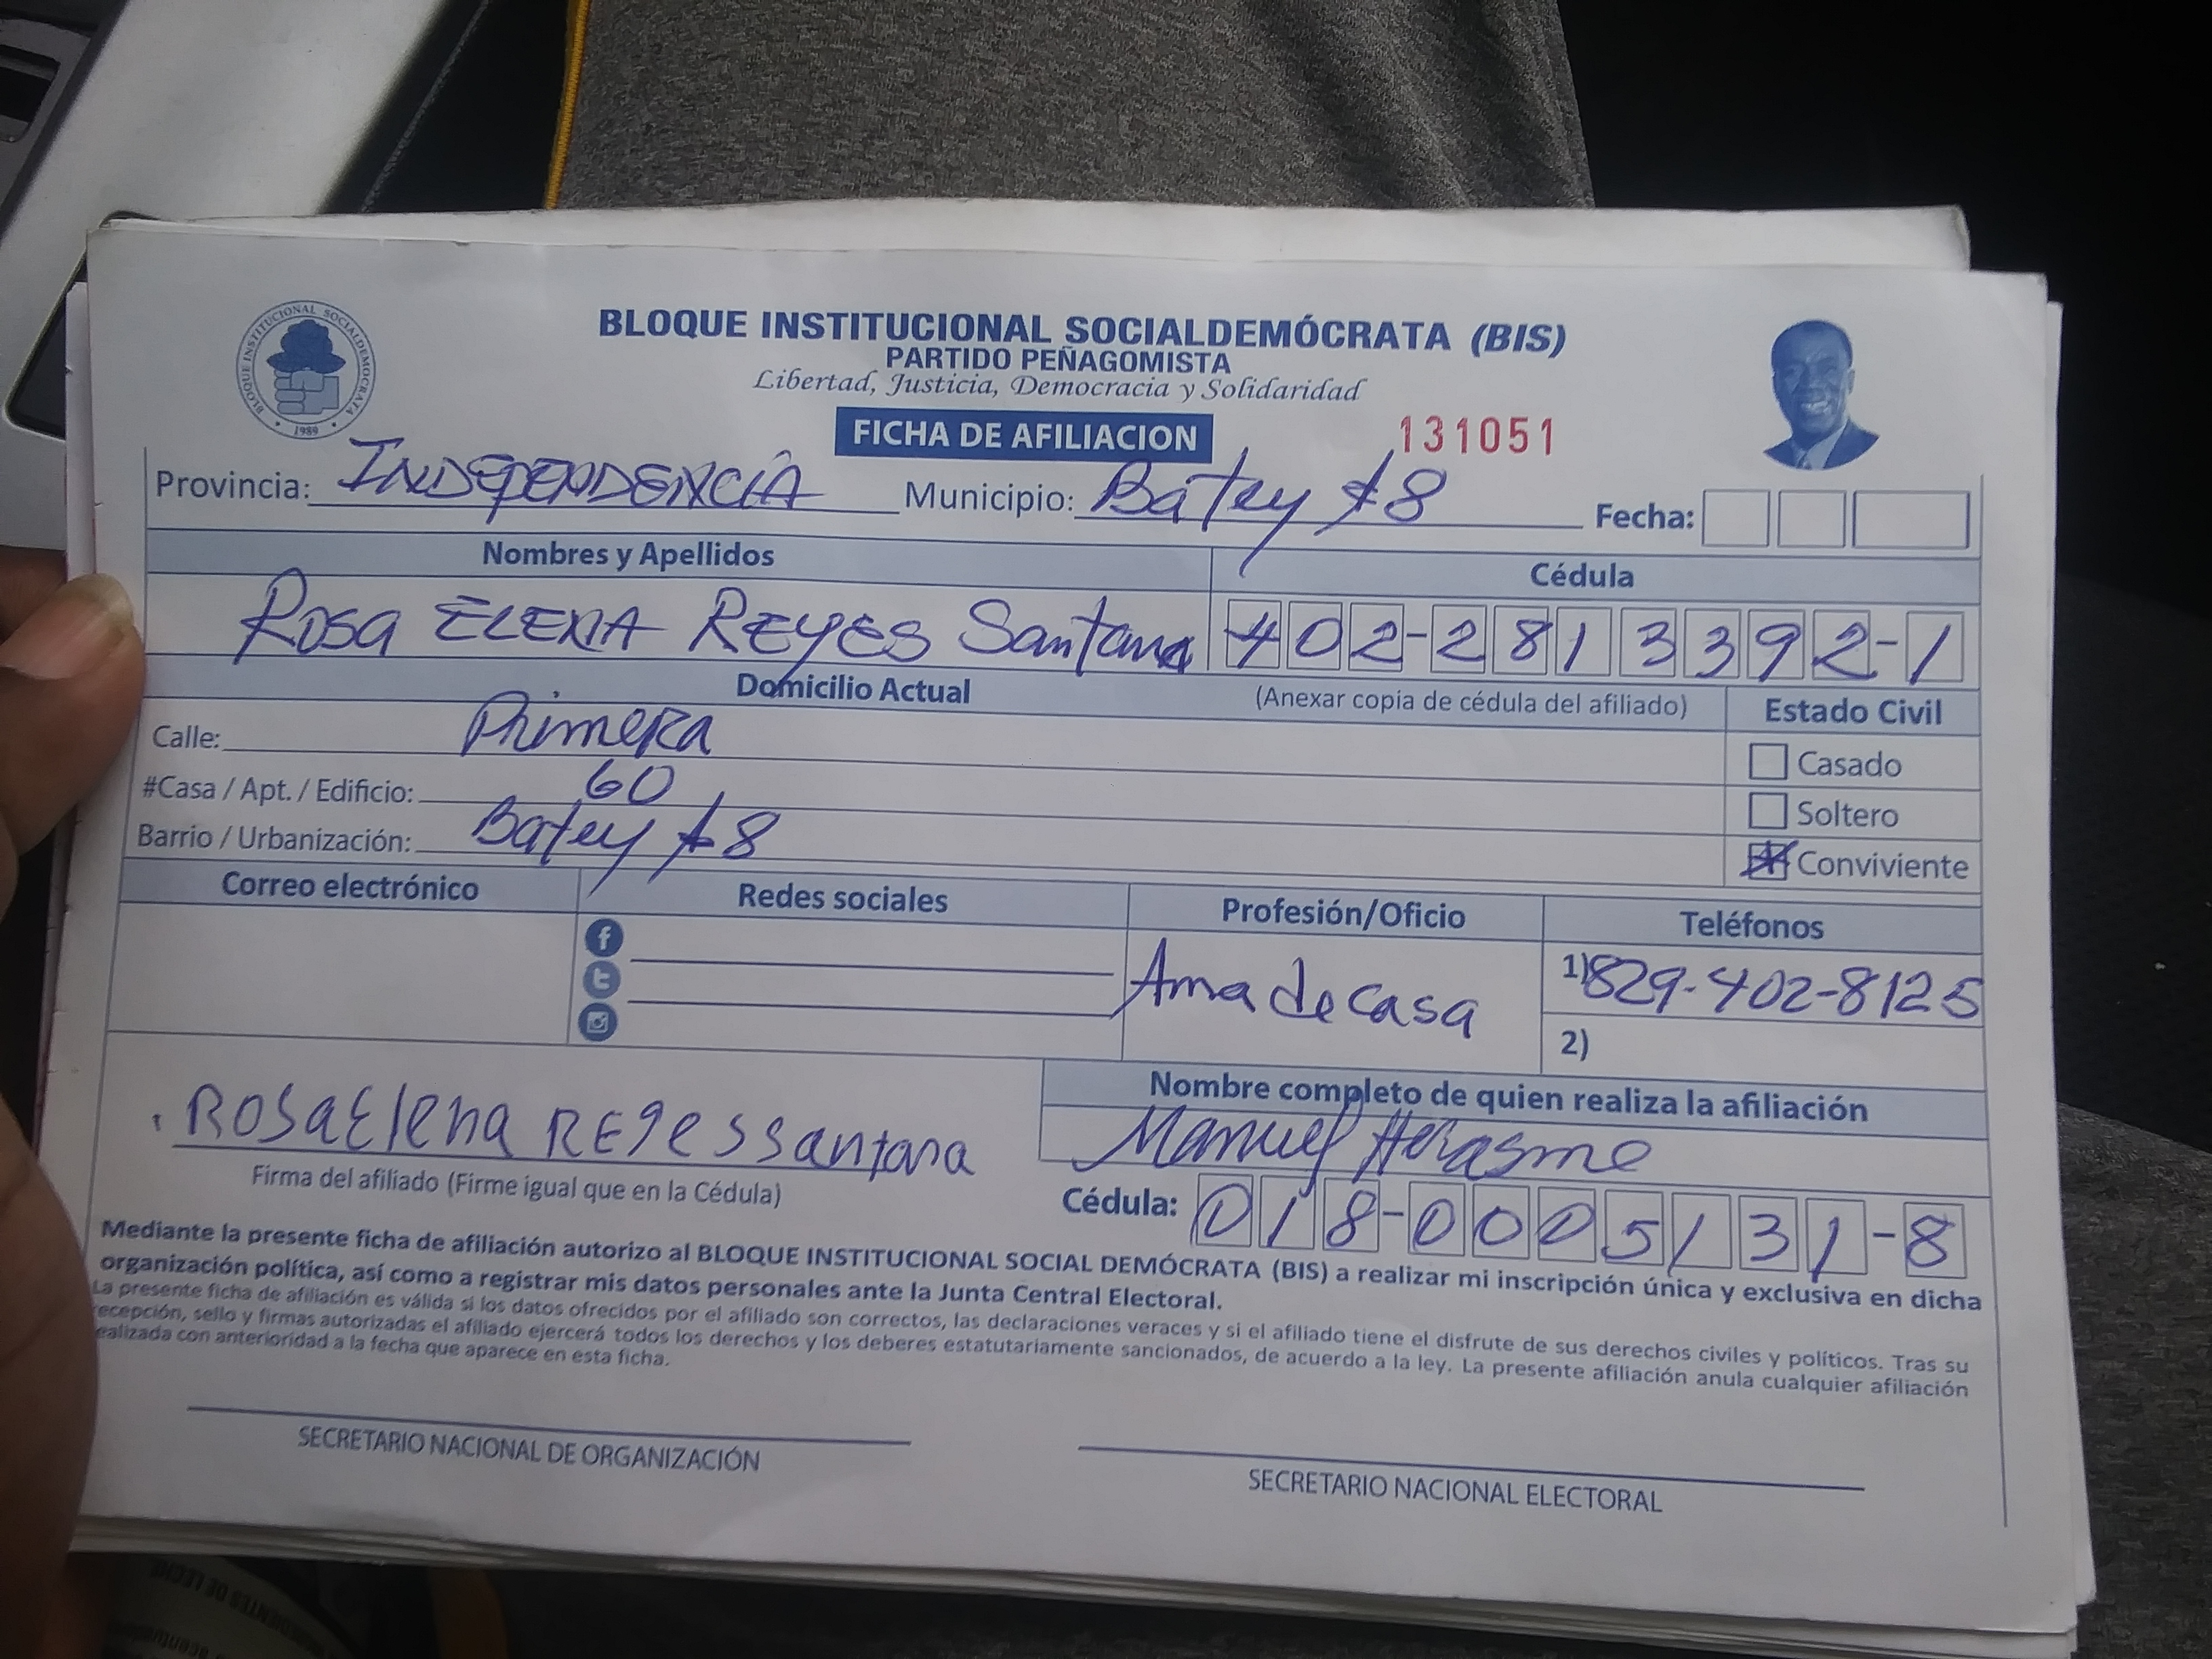 BLOQUE INSTITUCIONAL SOCIALDEMÓCRATA
1989
BLOQUE INSTITUCIONAL SOCIALDEMÓCRATA (BIS)
PARTIDO PEÑAGOMISTA
Libertad, Justicia, Democracia y Solidaridad
FICHA DE AFILIACION 131051
Provincia: INDEPENDENCIA Municipio: Batey #8 Fecha:
Nombres y Apellidos Cédula
ROSA ELENA REYES Santana 402-2813392-1
Domicilio Actual (Anexar copia de cédula del afiliado) Estado Civil
Calle: Primera Casado
#Casa / Apt. / Edificio: 60 Soltero
Barrio / Urbanización: Batey #8 Conviviente
Correo electrónico Redes sociales Profesión/Oficio Teléfonos
Ama de casa 1) 829-402-8125
2)
Nombre completo de quien realiza la afiliación
Rosa Elena REyes santana Manuel Herasme
Firma del afiliado (Firme igual que en la Cédula) Cédula: 018-0005131-8
Mediante la presente ficha de afiliación autorizo al BLOQUE INSTITUCIONAL SOCIAL DEMÓCRATA (BIS) a realizar mi inscripción única y exclusiva en dicha
organización política, así como a registrar mis datos personales ante la Junta Central Electoral.
La presente ficha de afiliación es válida si los datos ofrecidos por el afiliado son correctos, las declaraciones veraces y si el afiliado tiene el disfrute de sus derechos civiles y políticos. Tras su
recepción, sello y firmas autorizadas el afiliado ejercerá todos los derechos y los deberes estatutariamente sancionados, de acuerdo a la ley. La presente afiliación anula cualquier afiliación
ealizada con anterioridad a la fecha que aparece en esta ficha.
SECRETARIO NACIONAL DE ORGANIZACIÓN SECRETARIO NACIONAL ELECTORAL